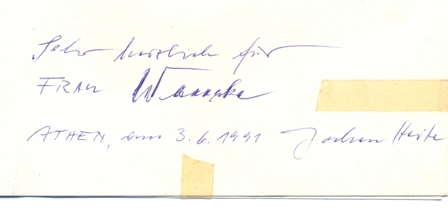 Sehr herzlich für
FRAU
ATHEN, am 3.6.1991 Jochen